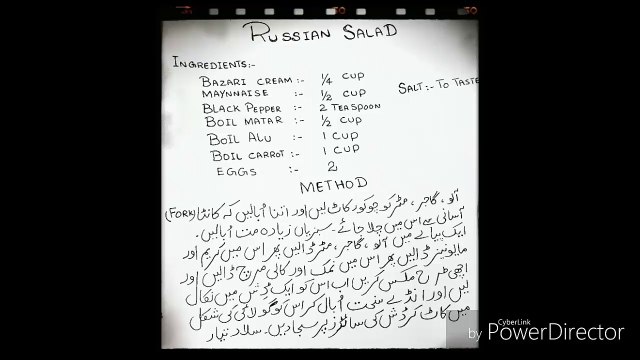 RUSSIAN SALAD
INGREDIENTS:-
BAZARI CREAM :- 1/4 CUP
MAYNNAISE :- 1/2 CUP
SALT :- TO TASTE
BLACK PEPPER :- 2 TEASPOON
BOIL MATAR :- 1/2 CUP
BOIL ALU :- 1 CUP
BOIL CARROT :- 1 CUP
EGGS :- 2
METHOD
آلو، گاجر، مٹر کو چوکور کاٹ لیں اور اتنا اُبالیں کہ کانٹا (FORK)
آسانی سے اس میں چلا جائے۔ سبزیاں زیادہ مت اُبالیں۔
ایک پیالے میں آلو، گاجر، مٹر ڈالیں پھر اس میں کریم اور
مایونیز ڈالیں پھر اس میں نمک اور کالی مرچ ڈالیں اور
اچھی طرح مکس کریں اب اس کو ایک ڈش میں نکال
لیں اور انڈے سخت اُبال کر اس کو گولائی کی شکل
میں کاٹ کر ڈش کی سائڈز پر سجا دیں۔ سلاد تیار
CyberLink
by PowerDirector